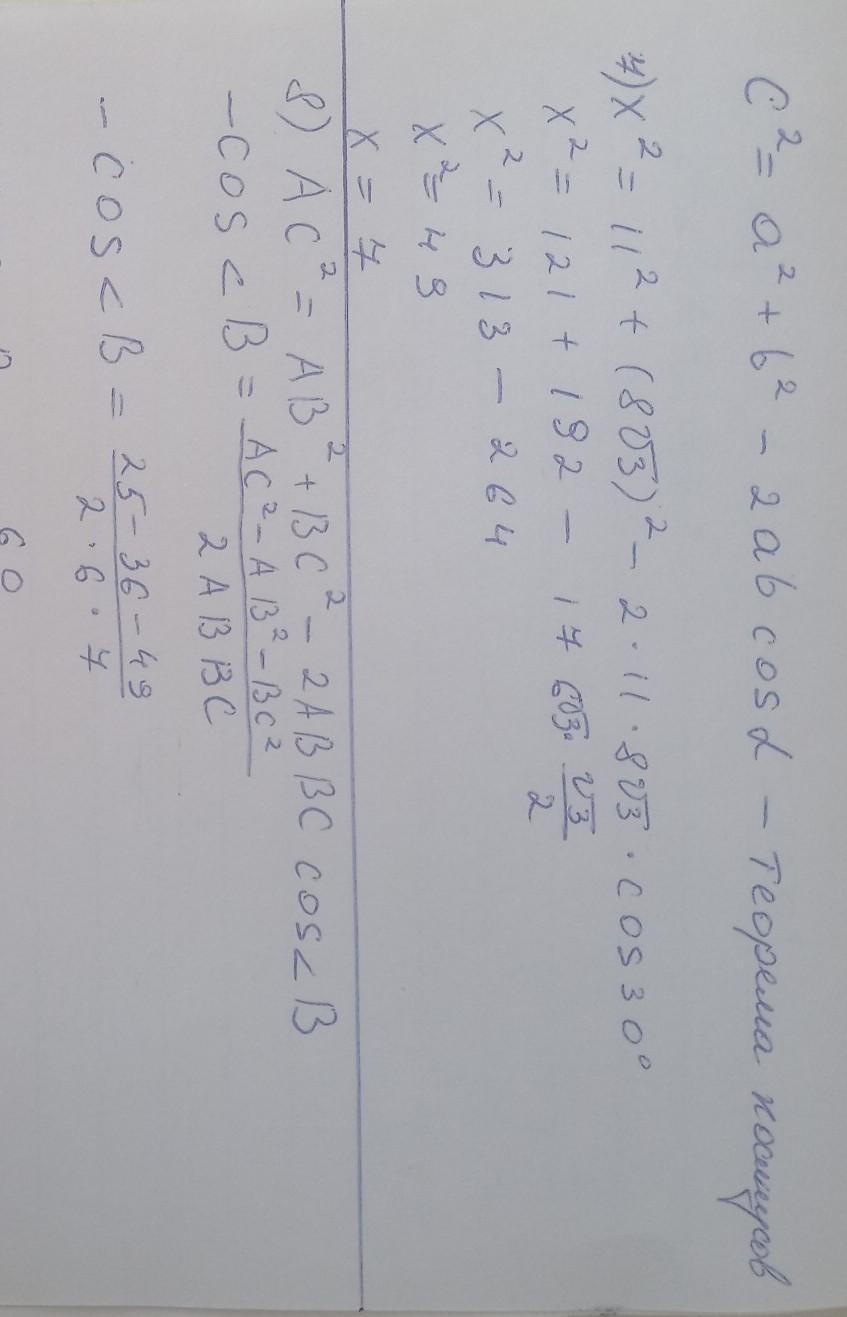 C² = a² + b² - 2ab cos α - Теорема косинусов
7) x² = 11² + (8√3)² - 2·11·8√3·cos 30°
x² = 121 + 192 - 176√3·√3/2
x² = 313 - 264
x² = 49
x = 7
8) AC² = AB² + BC² - 2AB BC cos < B
-cos < B = AC² - AB² - BC² / 2AB BC
-cos < B = 25 - 36 - 49 / 2·6·7
60